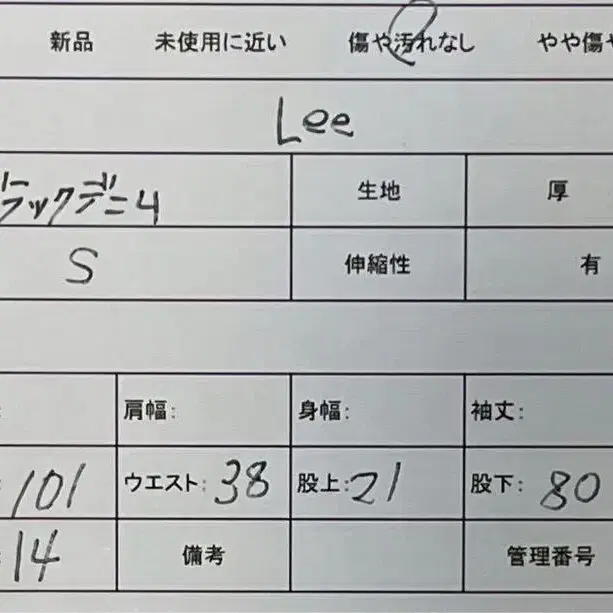 新品 未使用に近い 傷や汚れなし やや傷や
Lee
ブラックデニム 生地 厚
S 伸縮性 有
: 肩幅: 身幅: 袖丈:
: 101 ウエスト: 38 股上: 21 股下: 80
: 14 備考 管理番号